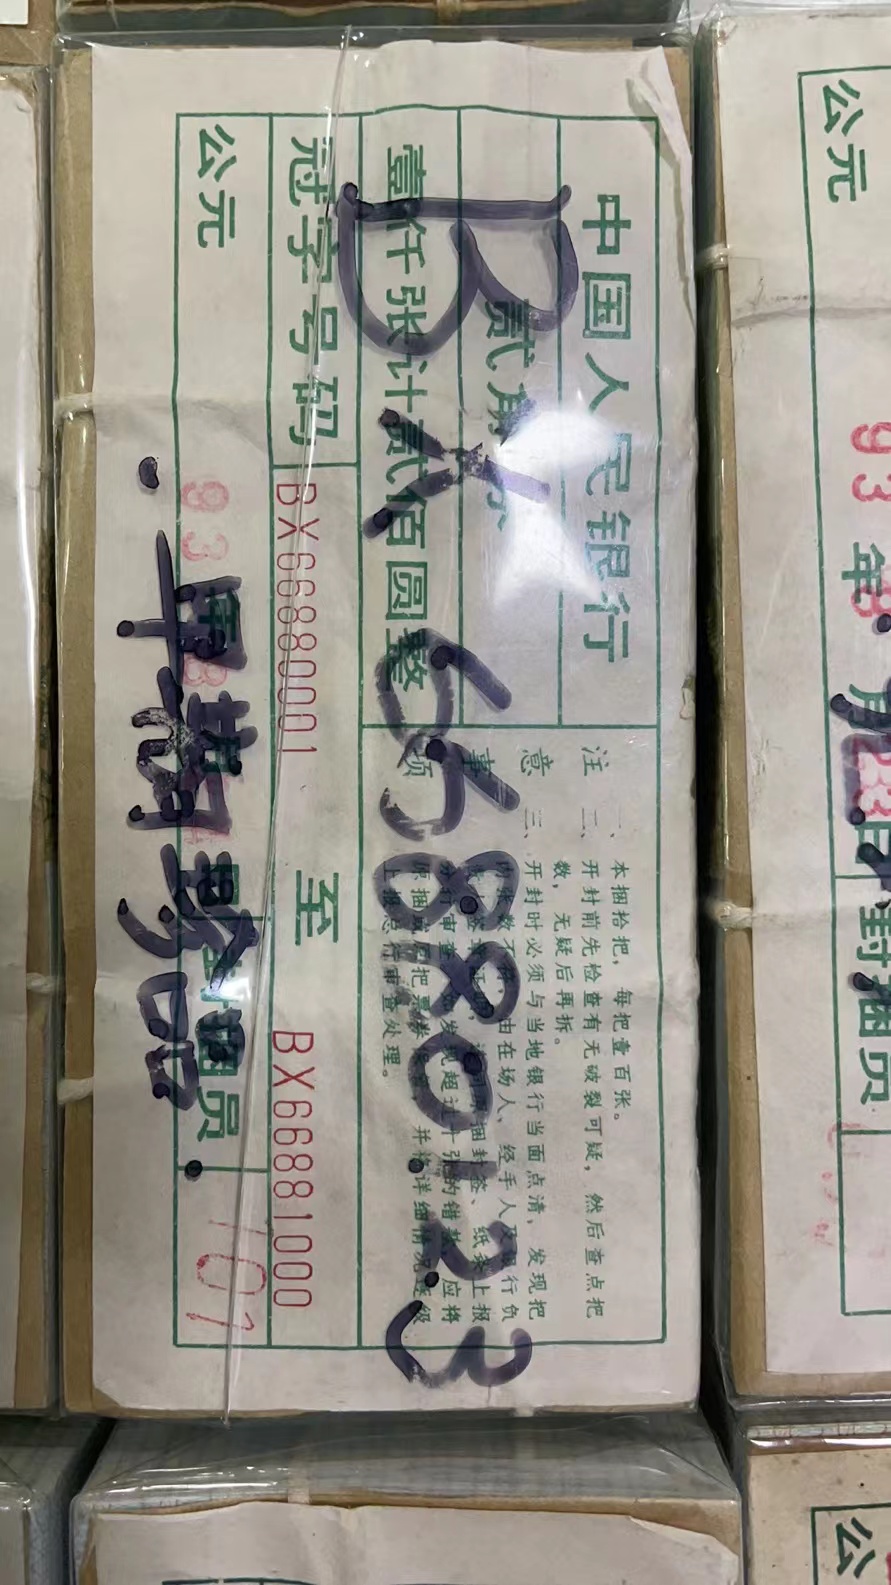 中国人民银行
贰角券
壹仟张计贰佰圆整
冠字号码 BX66880001 至 BX66881000
公元 93
封捆员 701
注意事项
一、本捆拾把，每把壹百张。
二、开封前先检查有无破裂可疑，然后查点把数，无疑后再拆。
三、开封时必须与当地银行当面点清，发现把
由在场人、经手人及银行负
捆封签、纸条上报
发现超过十张的错款，应将
原捆 原把票券 并将详细情况逐级
上报总行审查处理。
BX
6688
3
早期
珍品
公元
93年
月23日
封捆员
公